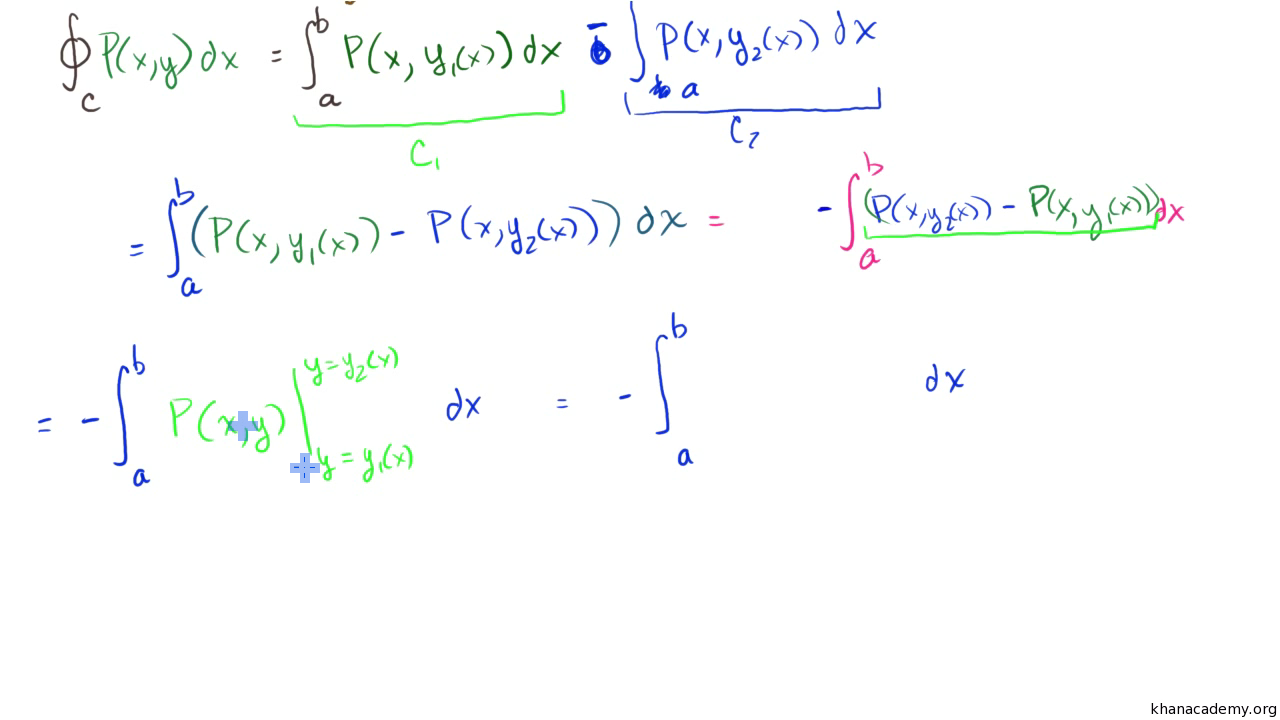 ∮_C P(x,y) dx = ∫_a^b P(x, y₁(x)) dx - ∫_a P(x, y₂(x)) dx
C₁ C₂
= ∫_a^b (P(x, y₁(x)) - P(x, y₂(x))) dx = - ∫_a^b (P(x, y₂(x)) - P(x, y₁(x))) dx
= - ∫_a^b P(x,y) |_{y = y₁(x)}^{y = y₂(x)} dx = - ∫_a^b dx
khanacademy.org